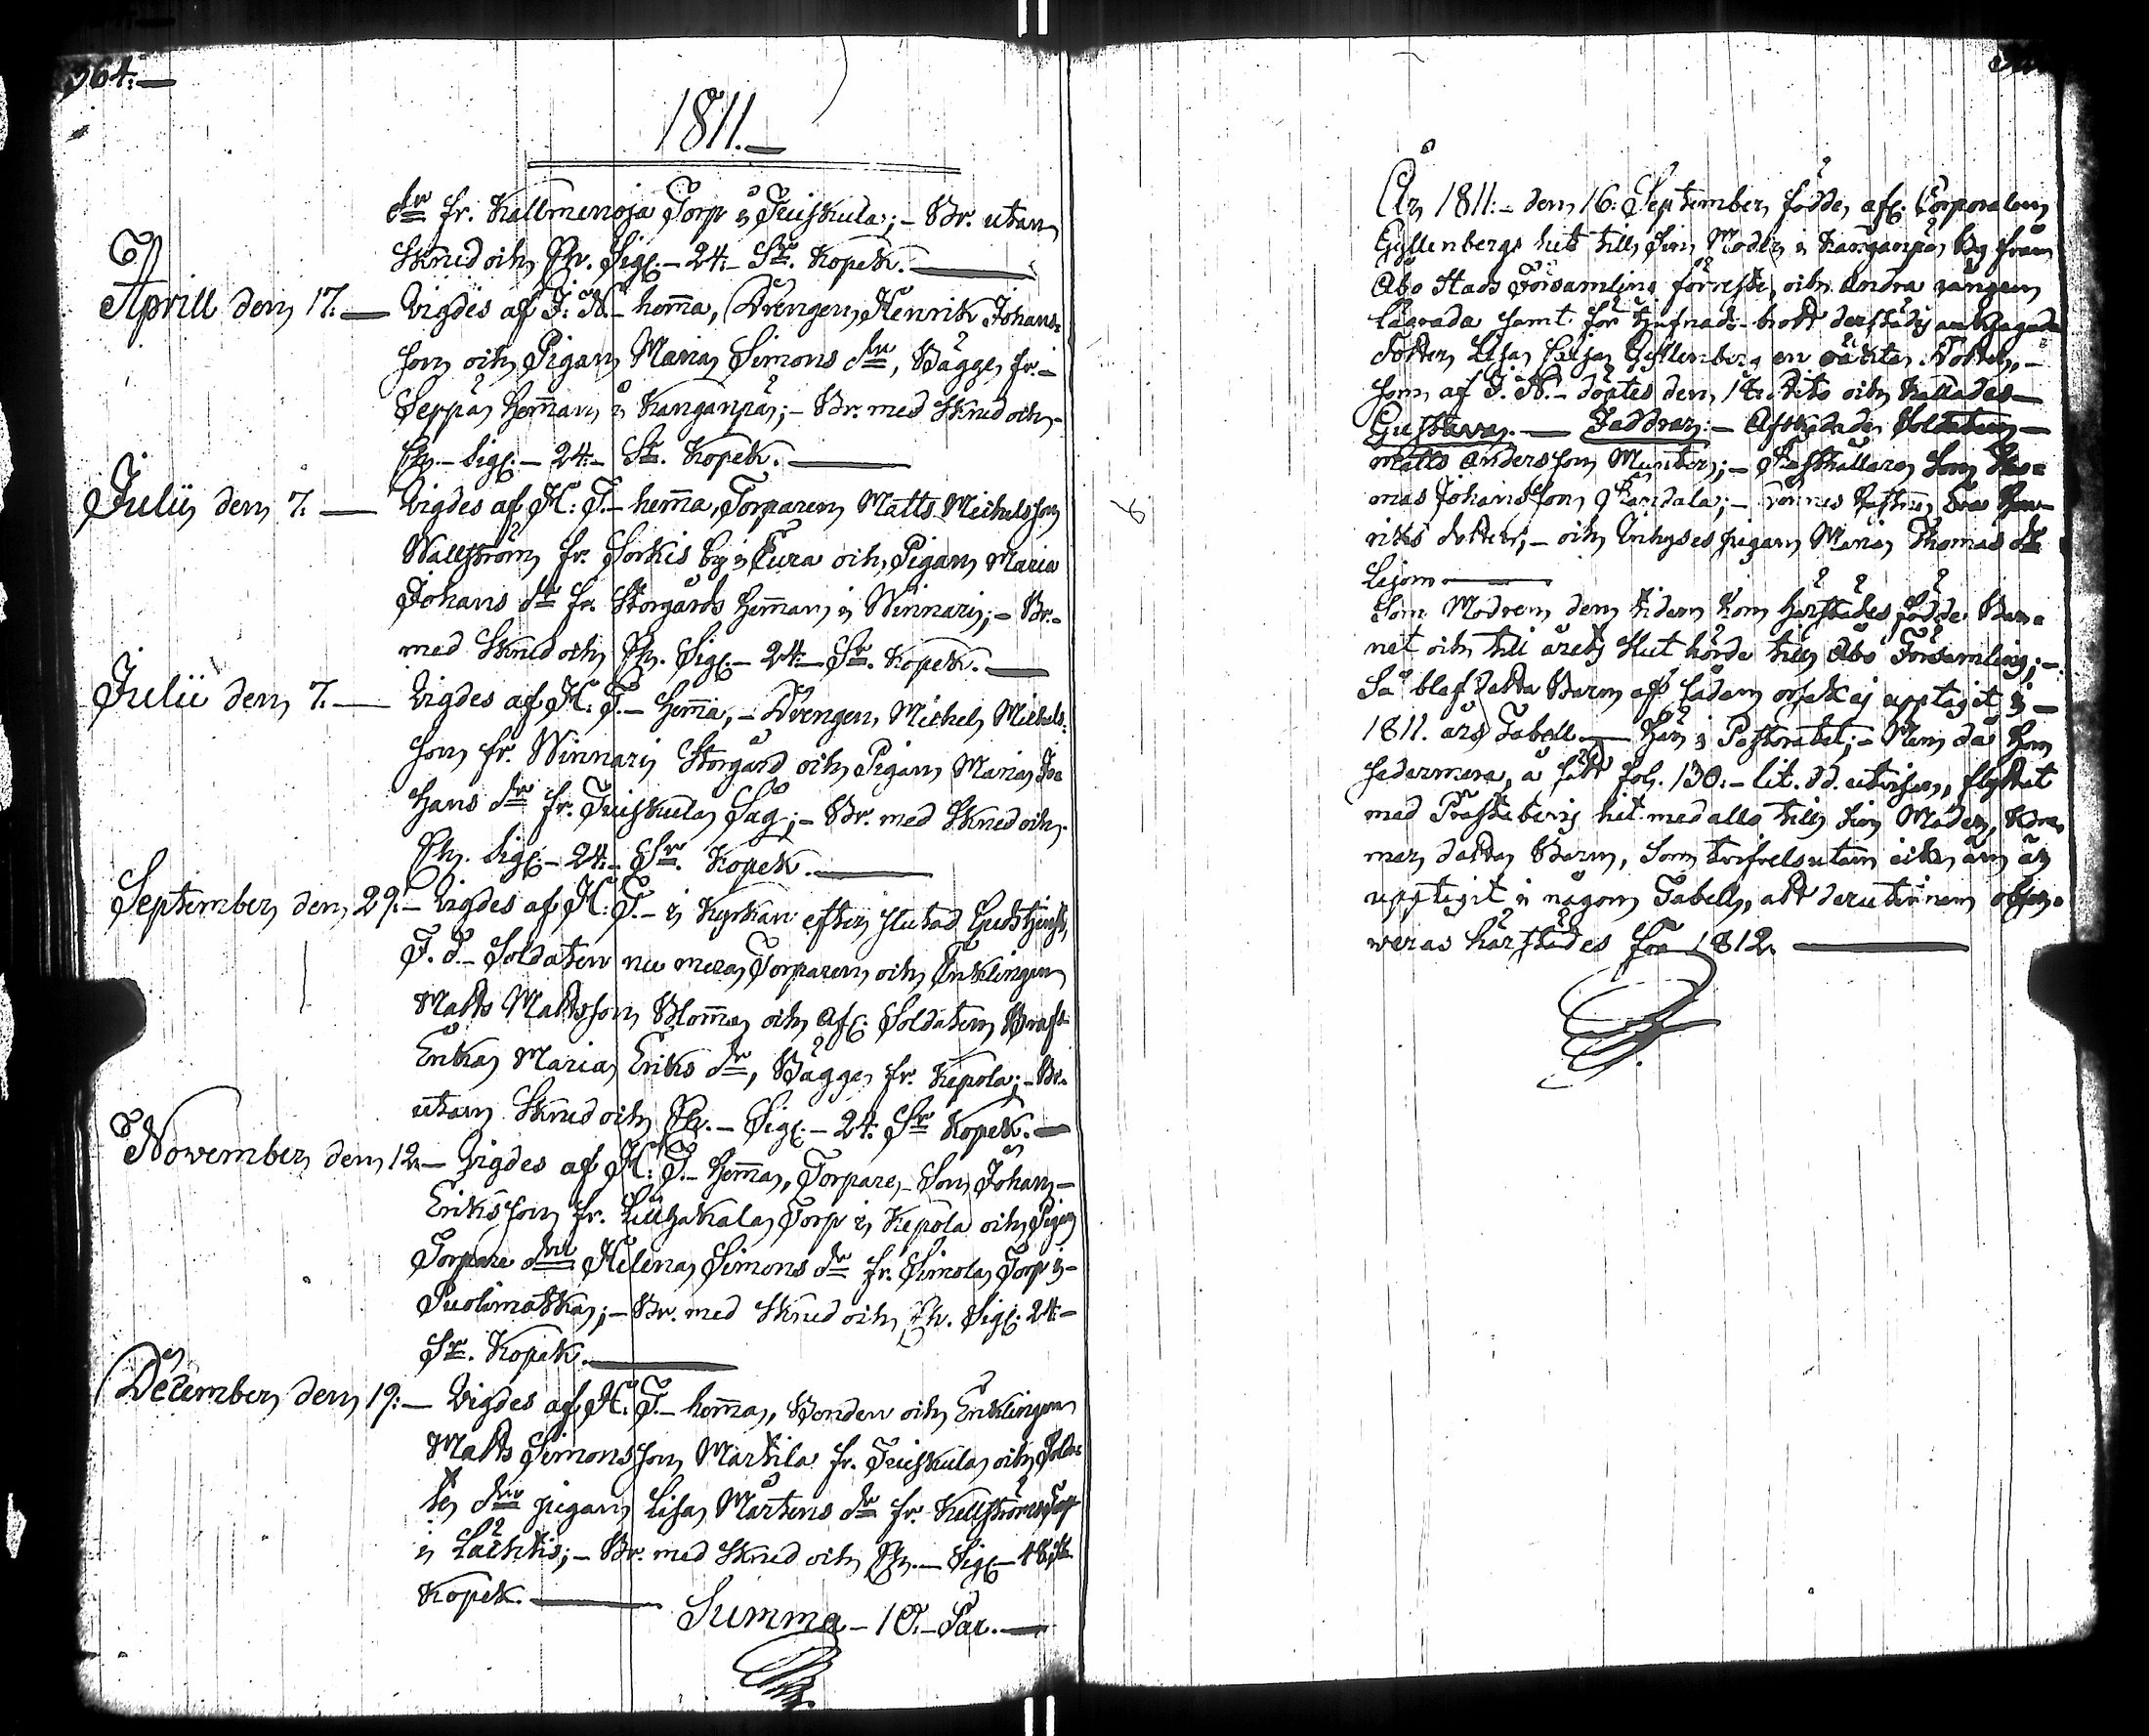 364.—
1811.—
dr fr. Kallmenoja Torp i Tuiskula; – Br. utan
Skrud och Ch. Sigl. – 24. – Sr. Kopek. —
Aprill den 17. — Vigdes af J. N. – hema, Drengen Henrik Johans
son och Pigan Maria Simons dr, Bägge fr. –
Seppä Heman i Kanganpä; – Br. med Skrud och –
Ch. – Sigl. – 24. – Sr. Kopek. —
Julii den 7. — Vigdes af H: T. – hema, Torparen Matts Michelsson
Wallström fr. Sorkis by i Eura och Pigan Maria
Johans dr fr. Storgårds Heman i Winnari; – Br. –
med Skrud och Ch. Sigl. – 24. – Sr. Kopek. —
Julii den 7. — Vigdes af H: T. – hema, – Drengen Michel Michels
son fr. Winnari Storgård och Pigan Maria Jo
hans dr fr. Tuiskula Såg; – Br. med Skrud och
Ch. Sigl. – 24. – Sr. Kopek. —
September den 29. – Vigdes af H: T. – i Kyrkan efter slutad Gudstjenst,
F. d. – Soldaten nu mera Torparen och Enklingen
Matts Mattsson Bloma och Afl. Soldaten
Enka Maria Eriks dr, Bägge fr. Kepola; – Br.
utan Skrud och Ch. – Sigl. – 24. Sr Kopek. —
November den 12. – Vigdes af H: T. – hema, Torpare – Son Johan –
Eriksson fr. Torp i Kepola och Pigan
Torpare dr Helena Simons dr fr. Simola Torp i –
Puolimatka; – Br. med Skrud och Ch. Sigl. 24. –
Sr. Kopek. —
December den 19. – Vigdes af H: T. – hema, Bonden och Enklingen
Matts Simonsson Martila fr. Tuiskula och Solda
te dr pigan Lisa Mårtens dr fr. Kellströms Torp
i Lächtis; – Br. med Skrud och Ch. – Sigl. – 48. Sr.
Kopek. —
Summa – 10. – Par. —
År 1811. – den 16. September födde, afl. Corporalens
Gyllenbergs hit till sin Moder i Kanganpä By från
Åbo Stads Församling förreste, och andra gången
lägrada samt för tjufnads-brott derstädes anklagade
dotter Lisa Gyllenberg en oäkta Dotter, –
som af J. N. – döptes den 18. dito och kallades –
Gustava. — Faddrar: – Afskedade Soldaten –
Matts Andersson Munter; – Rusthållare Son Tho=
mas Johansson Randala; – dennes Hustru Eva Hen=
riks dotter, – och Inhyses pigan Maria Thomas dr
Lejon —
Som Modren den tiden hon härstädes födde Bar=
net och till årets slut hörde till Åbo Församling; –
Så blef detta Barn af sådan orsak ej upptagit i –
1811. års Tabell — här i Pastoratet; – Men då hon
sedermera, å sätt fol. 130. – lit. dd. utvisar, flyttat
med Prästebevis hit med alla till sin Moder, kom=
mer detta Barn, som tvifvelsutan icke än är
upptagit i någon Tabell, att deruti obser=
veras härstädes för 1812. —